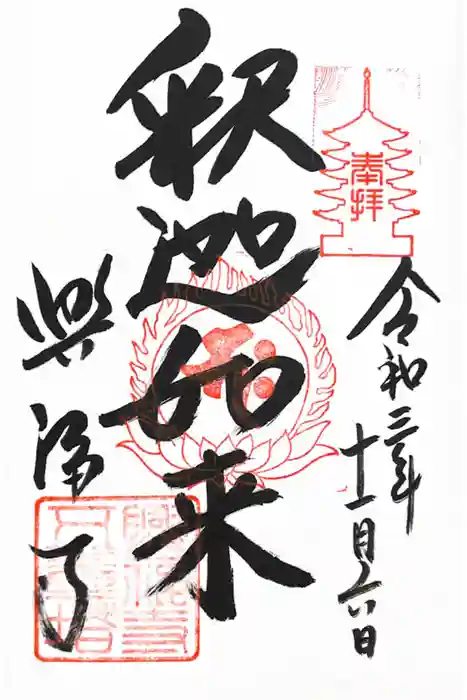 奉拝
令和三年十一月六日
釈迦如来
興禅寺